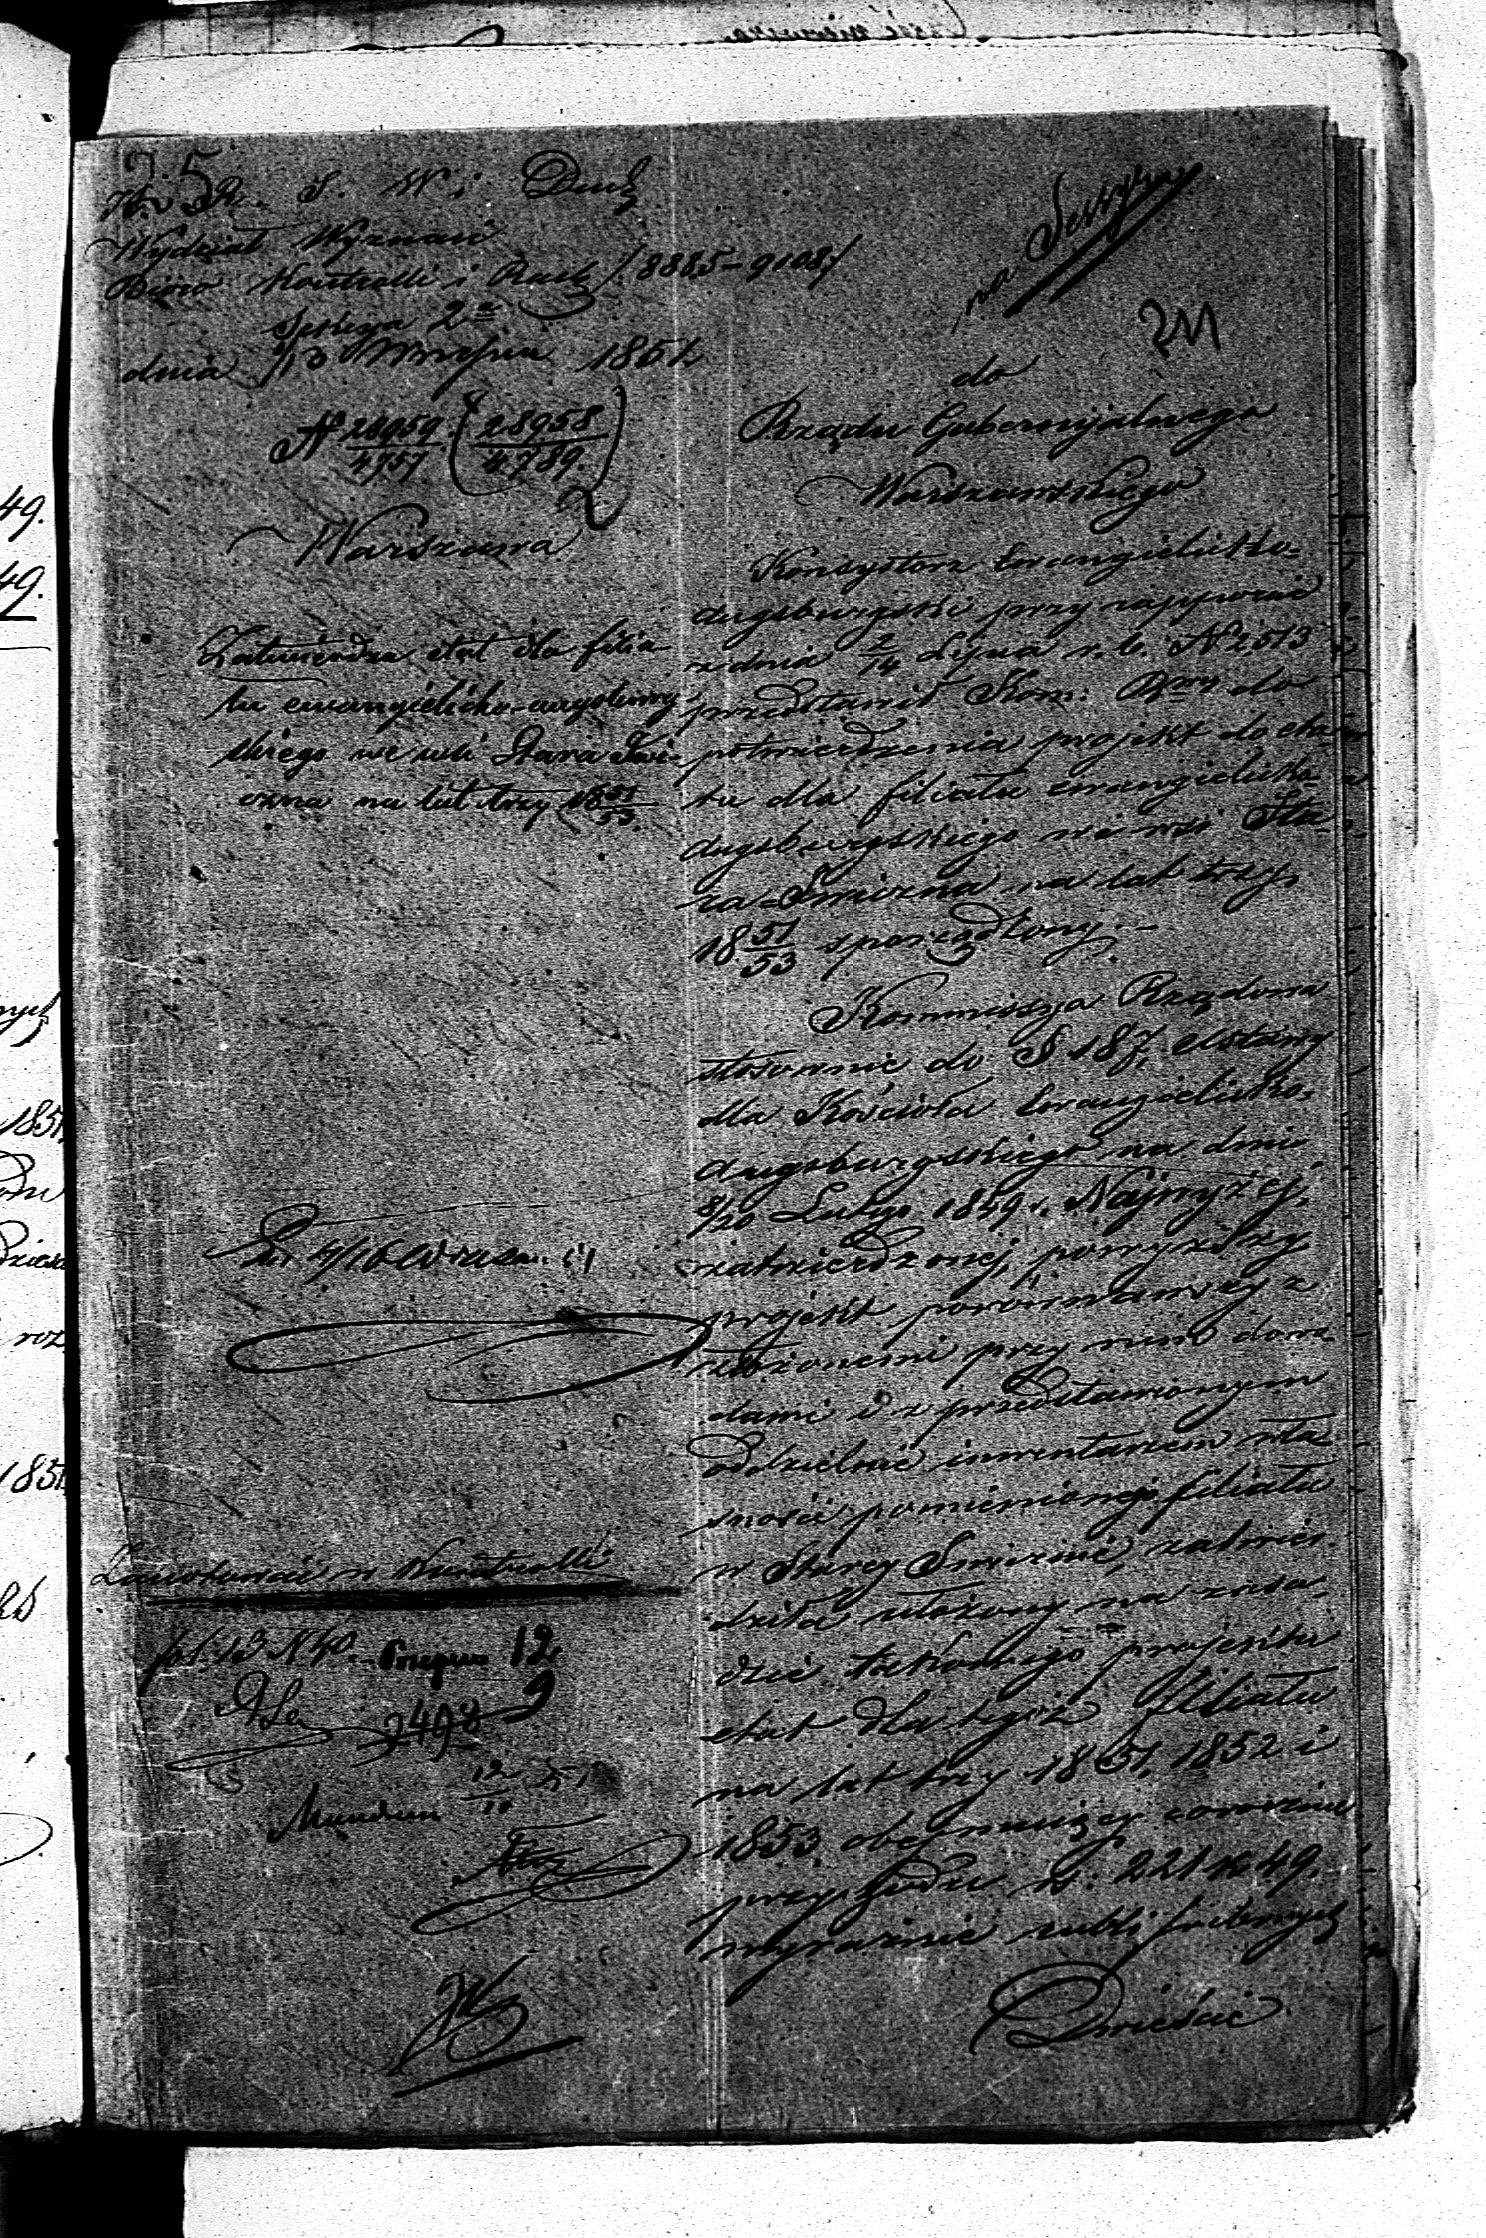 K. R. S. W. i Duch
Wydział Wyznań
Bióro Kontrolli i Rach /8885-9108/
Sekcya 2a
dnia 1/13 Września 1851
N 28959/4757 (28958/4789.)
Warszawa
Zatwierdza etat dla filia-
łu ewangielicko-augsburg
skiego we wsi Stara Iwi-
czna na lat trzy 1851/53.
Zanotować w Kontrolli
fol: 13 N 40.
2498
Mundum
na Sessyą
do
Rządu Gubernijalnego
Warszawskiego
Konsystorz Ewangielicko-
Augsburgski przy rapporcie
z dnia 2/14 Lipca r. b. N 2513
przedstawił Kom: Rząwy do
potwierdzenia projekt do eta-
tu dla filiału ewangielicko
augsburgskiego we wsi Sta-
ra-Iwiczna na lat trzy
1851/53 sporządzony.-
Kommissya Rządowa
stosownie do § 187, Ustawy
dla Kościoła Ewangielicko-
Augsburgskiego na dniu
8/20 Lutego 1849 r. Najwyżej
zatwierdzonej, powyższy
projekt porównawszy z
złożonemi przy nim dowo-
dami i z przedstawionym
oddzielnie inwentarzem wła-
sności pomienionego filiału
w Starey Iwicznie, zatwier-
dziła ułożony na zasa-
dzie takowego projektu
etat dla tegoż filiału
na lat trzy 1851, 1852 i
1853 obejmujący corocznie
przychodu rs: 221 k 49.
wyraźnie rubli srebrnych
Dwieście